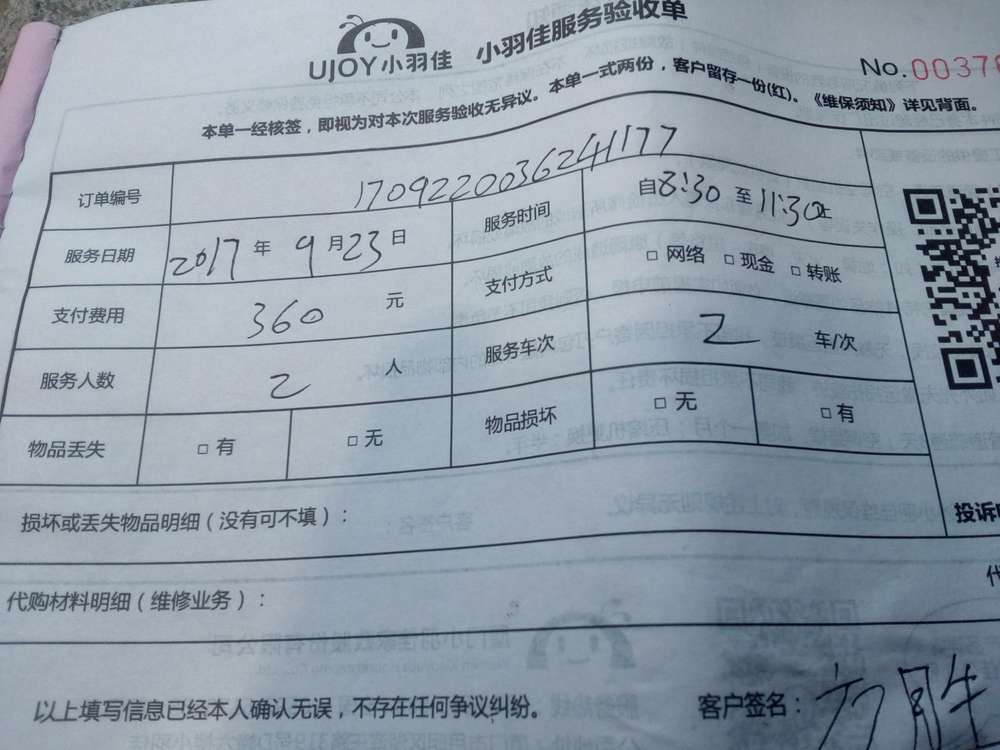 UJOY小羽佳 小羽佳服务验收单
No.00370
本单一经核签，即视为对本次服务验收无异议。本单一式两份，客户留存一份(红)。《维保须知》详见背面。
订单编号 1709220036241177
服务日期 2017年9月23日 服务时间 自8:30至11:30止
支付费用 360元 支付方式 □网络 □现金 □转账
服务人数 2人 服务车次 2车/次
物品丢失 □有 □无 物品损坏 □无 □有
损坏或丢失物品明细（没有可不填）：
投诉
代购材料明细（维修业务）：
以上填写信息已经本人确认无误，不存在任何争议纠纷。 客户签名：